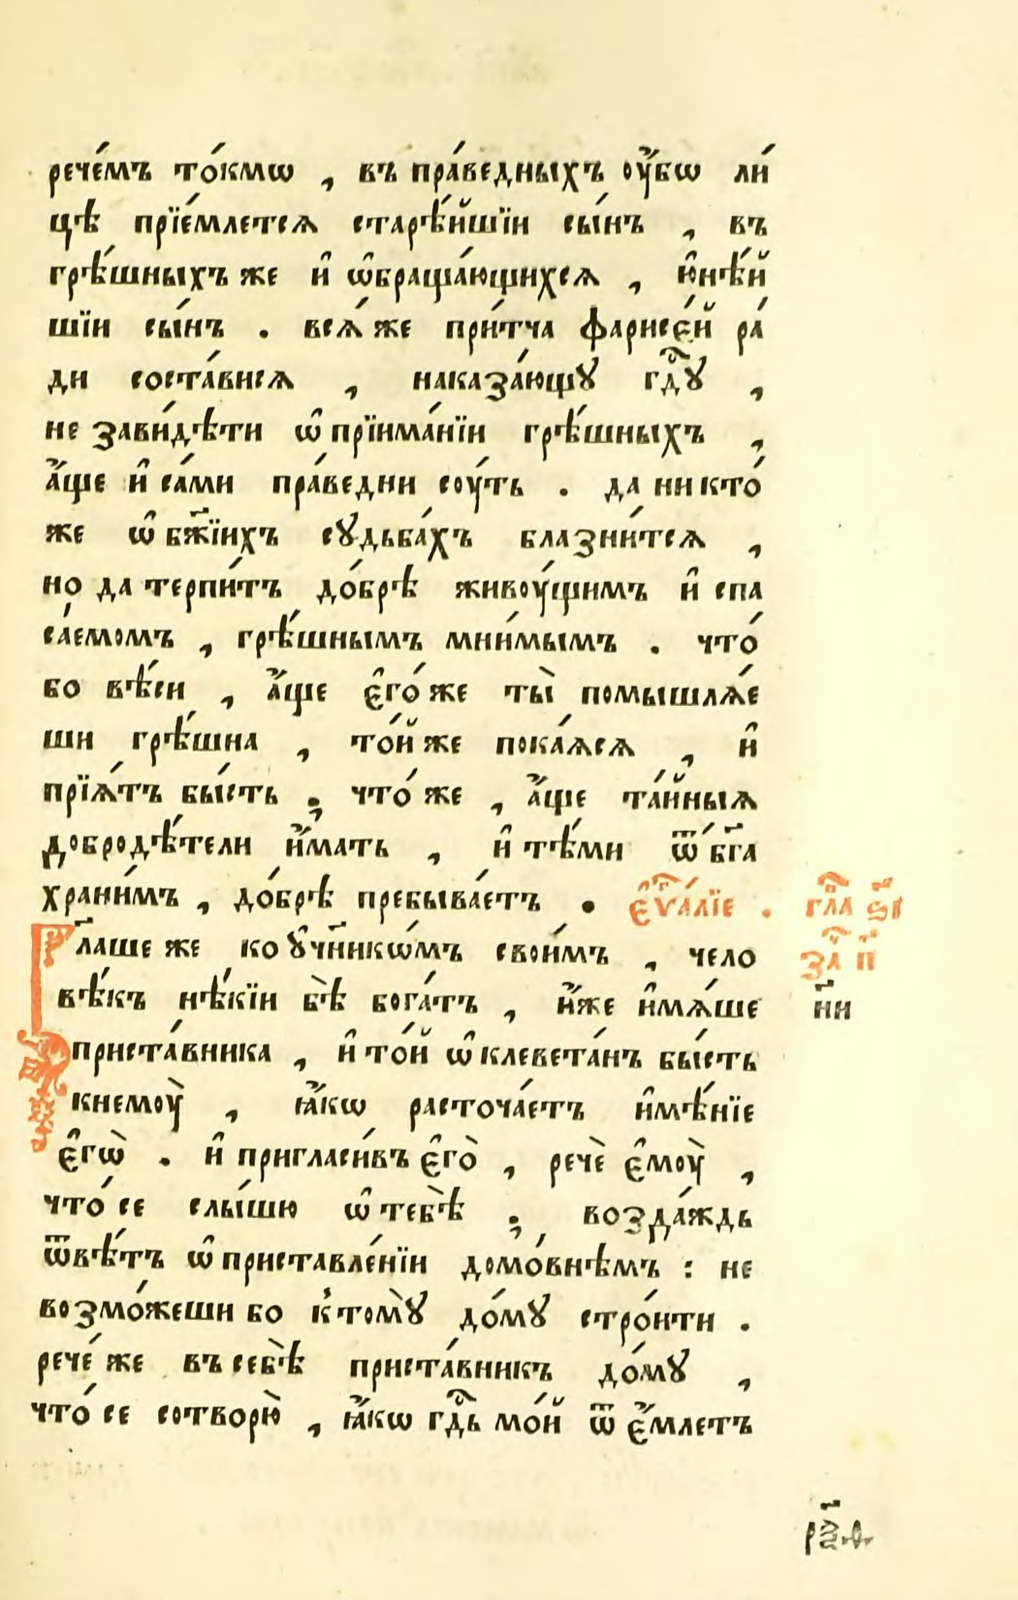 рече́мъ то́кмѡ , въ пра́ведныхъ ᲂу҆́бѡ ли́
цѣ прїе́млетсѧ старѣ́йшїи сы́нъ , въ
грѣ́шныхъ же и҆ ѡ҆браща́ющихсѧ , ю҆нѣ́й
шїи сы́нъ . всѧ́ же при́тча фарисе́й ра́
ди соста́висѧ , наказа́ющꙋ гдⷭ҇ꙋ ,
не зави́дѣти ѡ҆ прїима́нїи грѣ́шныхъ ,
а҆́ще и҆ са́ми пра́ведни соу́ть . да никто́
же ѡ҆ бж҃їихъ сꙋдьба́хъ блазни́тсѧ ,
но да терпи́тъ до́брѣ живоу́щимъ и҆ спа
са́емомъ , грѣ́шнымъ мни́мымъ . что́
бо вѣ́си , а҆́ще є҆го́ же ты̀ помышлѧ́е
ши грѣ́шна , то́й же пока́ѧсѧ , и҆
прїѧ́тъ бы́сть ; что́ же , а҆́ще та́йныѧ
добродѣ́тели и҆́мать , и҆ тѣ́ми ѿ бг҃а
храни́мъ , до́брѣ пребыва́етъ . є҆ѵⷢ҇а́лїе . глⷡ҇а ѕ҃і
Гл҃аше же ко ᲂу҆чн҃икѡ́мъ свои́мъ , чело зⷱ҇а п҃
вѣ́къ нѣ́кїи бѣ̀ бога́тъ , и҆́же и҆мѧ́ше н҃и
приста́вника , и҆ то́й ѡ҆клевета́нъ бы́сть
кнемоу̀ , ꙗ҆́кѡ расточа́етъ и҆мѣ́нїе
є҆гѡ̀ . и҆ пригласи́въ є҆го̀ , речѐ є҆моу̀ ,
что́ се слы́шю ѡ҆ тебѣ̀ ; возда́ждь
ѿвѣ́тъ ѡ҆ приставле́нїи домо́внѣмъ : не
возмо́жеши бо к̾томꙋ̀ до́мꙋ стро́ити .
рече́ же въ себѣ̀ приста́вникъ до́мꙋ ,
что́ се сотворю̀ , ꙗ҆́кѡ гдⷭ҇ь мо́й ѿ е҆́млетъ
рѯ҃ѳ